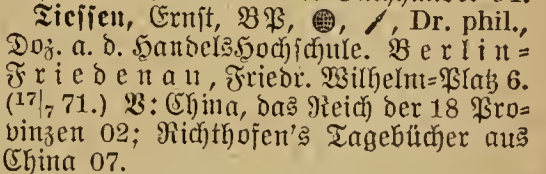 Tiessen, Ernst, VP, Dr. phil.,
Doz. a. d. HandelsHochschule. Berlin=
Friedenau, Friedr. Wilhelm=Platz 6.
(17|7 71.) V: China, das Reich der 18 Pro=
vinzen 02; Richthofen's Tagebücher aus
China 07.